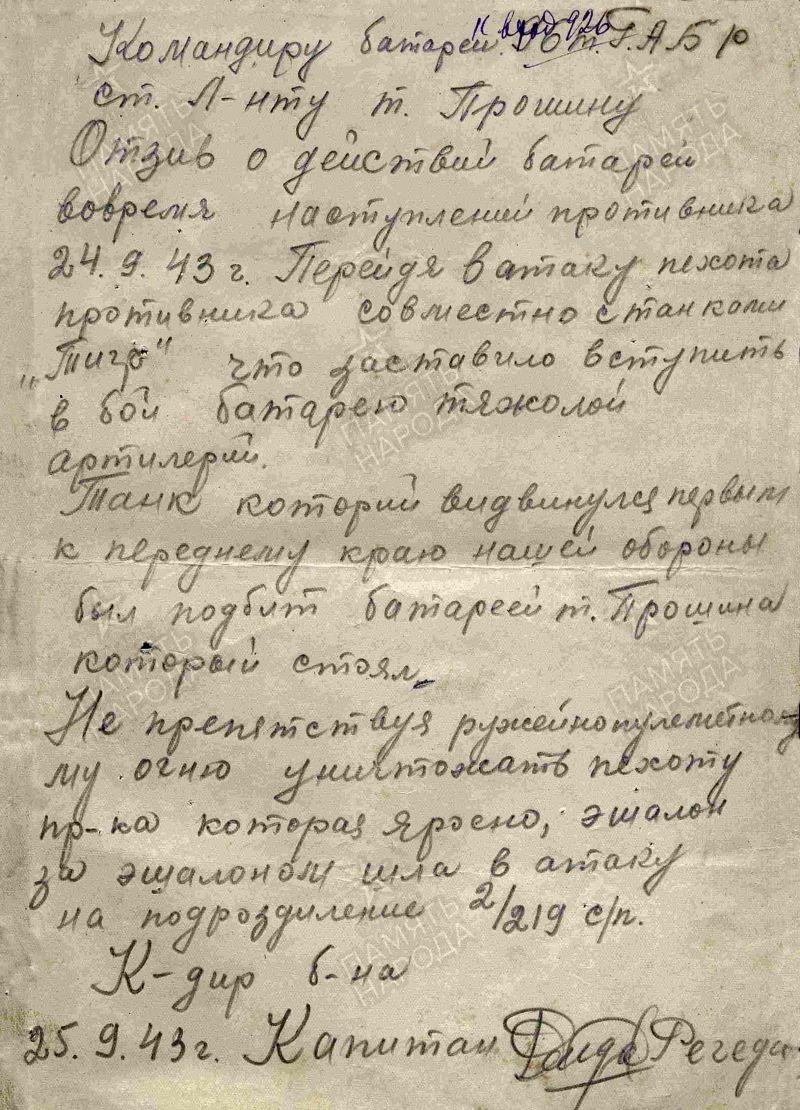 Командиру батареи Г.А.Бр
ст. Л-нту т. Прошину
Отзив о действий батареи
вовремя наступлений противника
24.9.43г. Перейдя в атаку пехота
противника совместно с танками
„Тигр" что заставило вступить
в бой батарею тяжолой
артилерий.
Танк которий видвинулся первым
к переднему краю нашей обороны
был подбит батареей т. Прошина
который стоял
Не препятствуя ружейнопулеметно-
му огню уничтожать пехоту
пр-ка которая яросно, эшалон
за эшалоном шла в атаку
на подрозделение 2/219 с/п.
К-дир б-на
25.9.43г. Капитан
ПАМЯТЬ НАРОДА